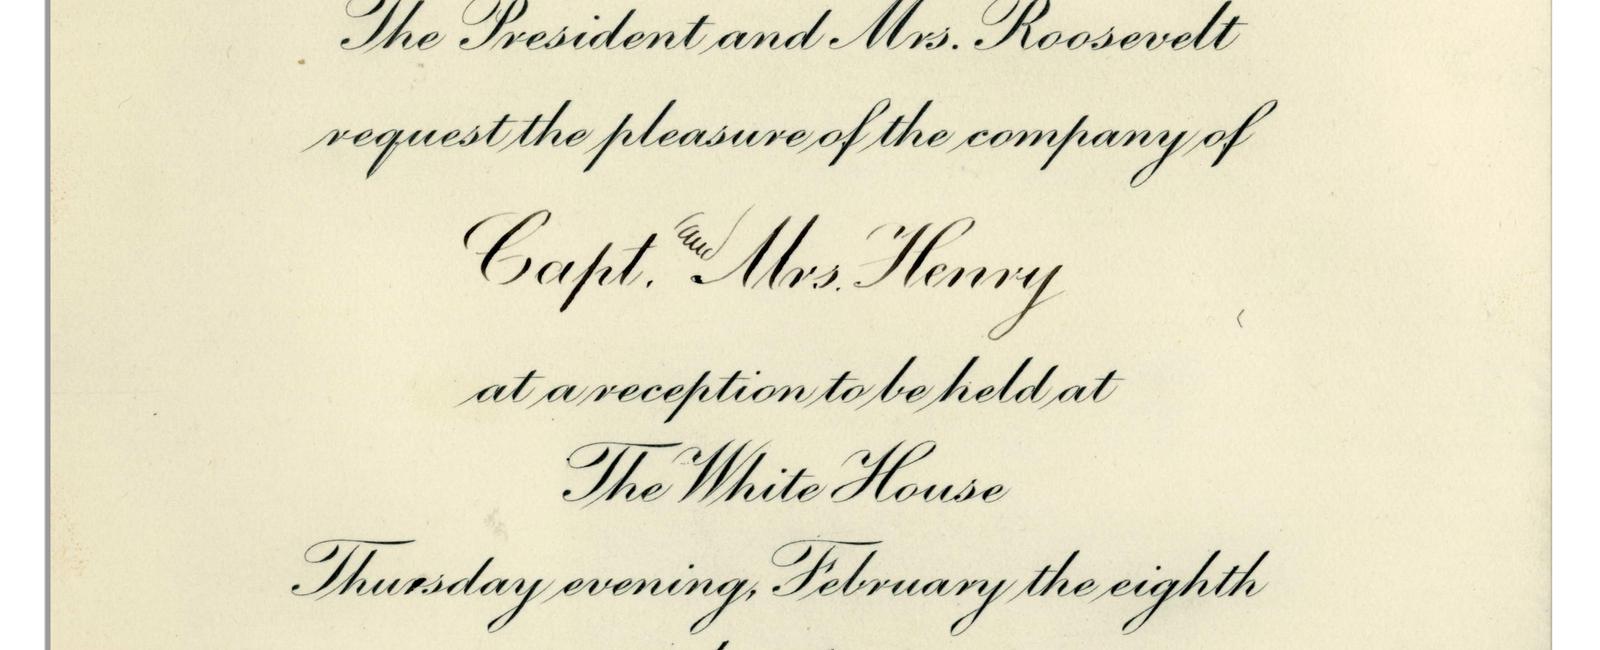 The President and Mrs. Roosevelt
request the pleasure of the company of
Capt. and Mrs. Henry
at a reception to be held at
The White House
Thursday evening, February the eighth